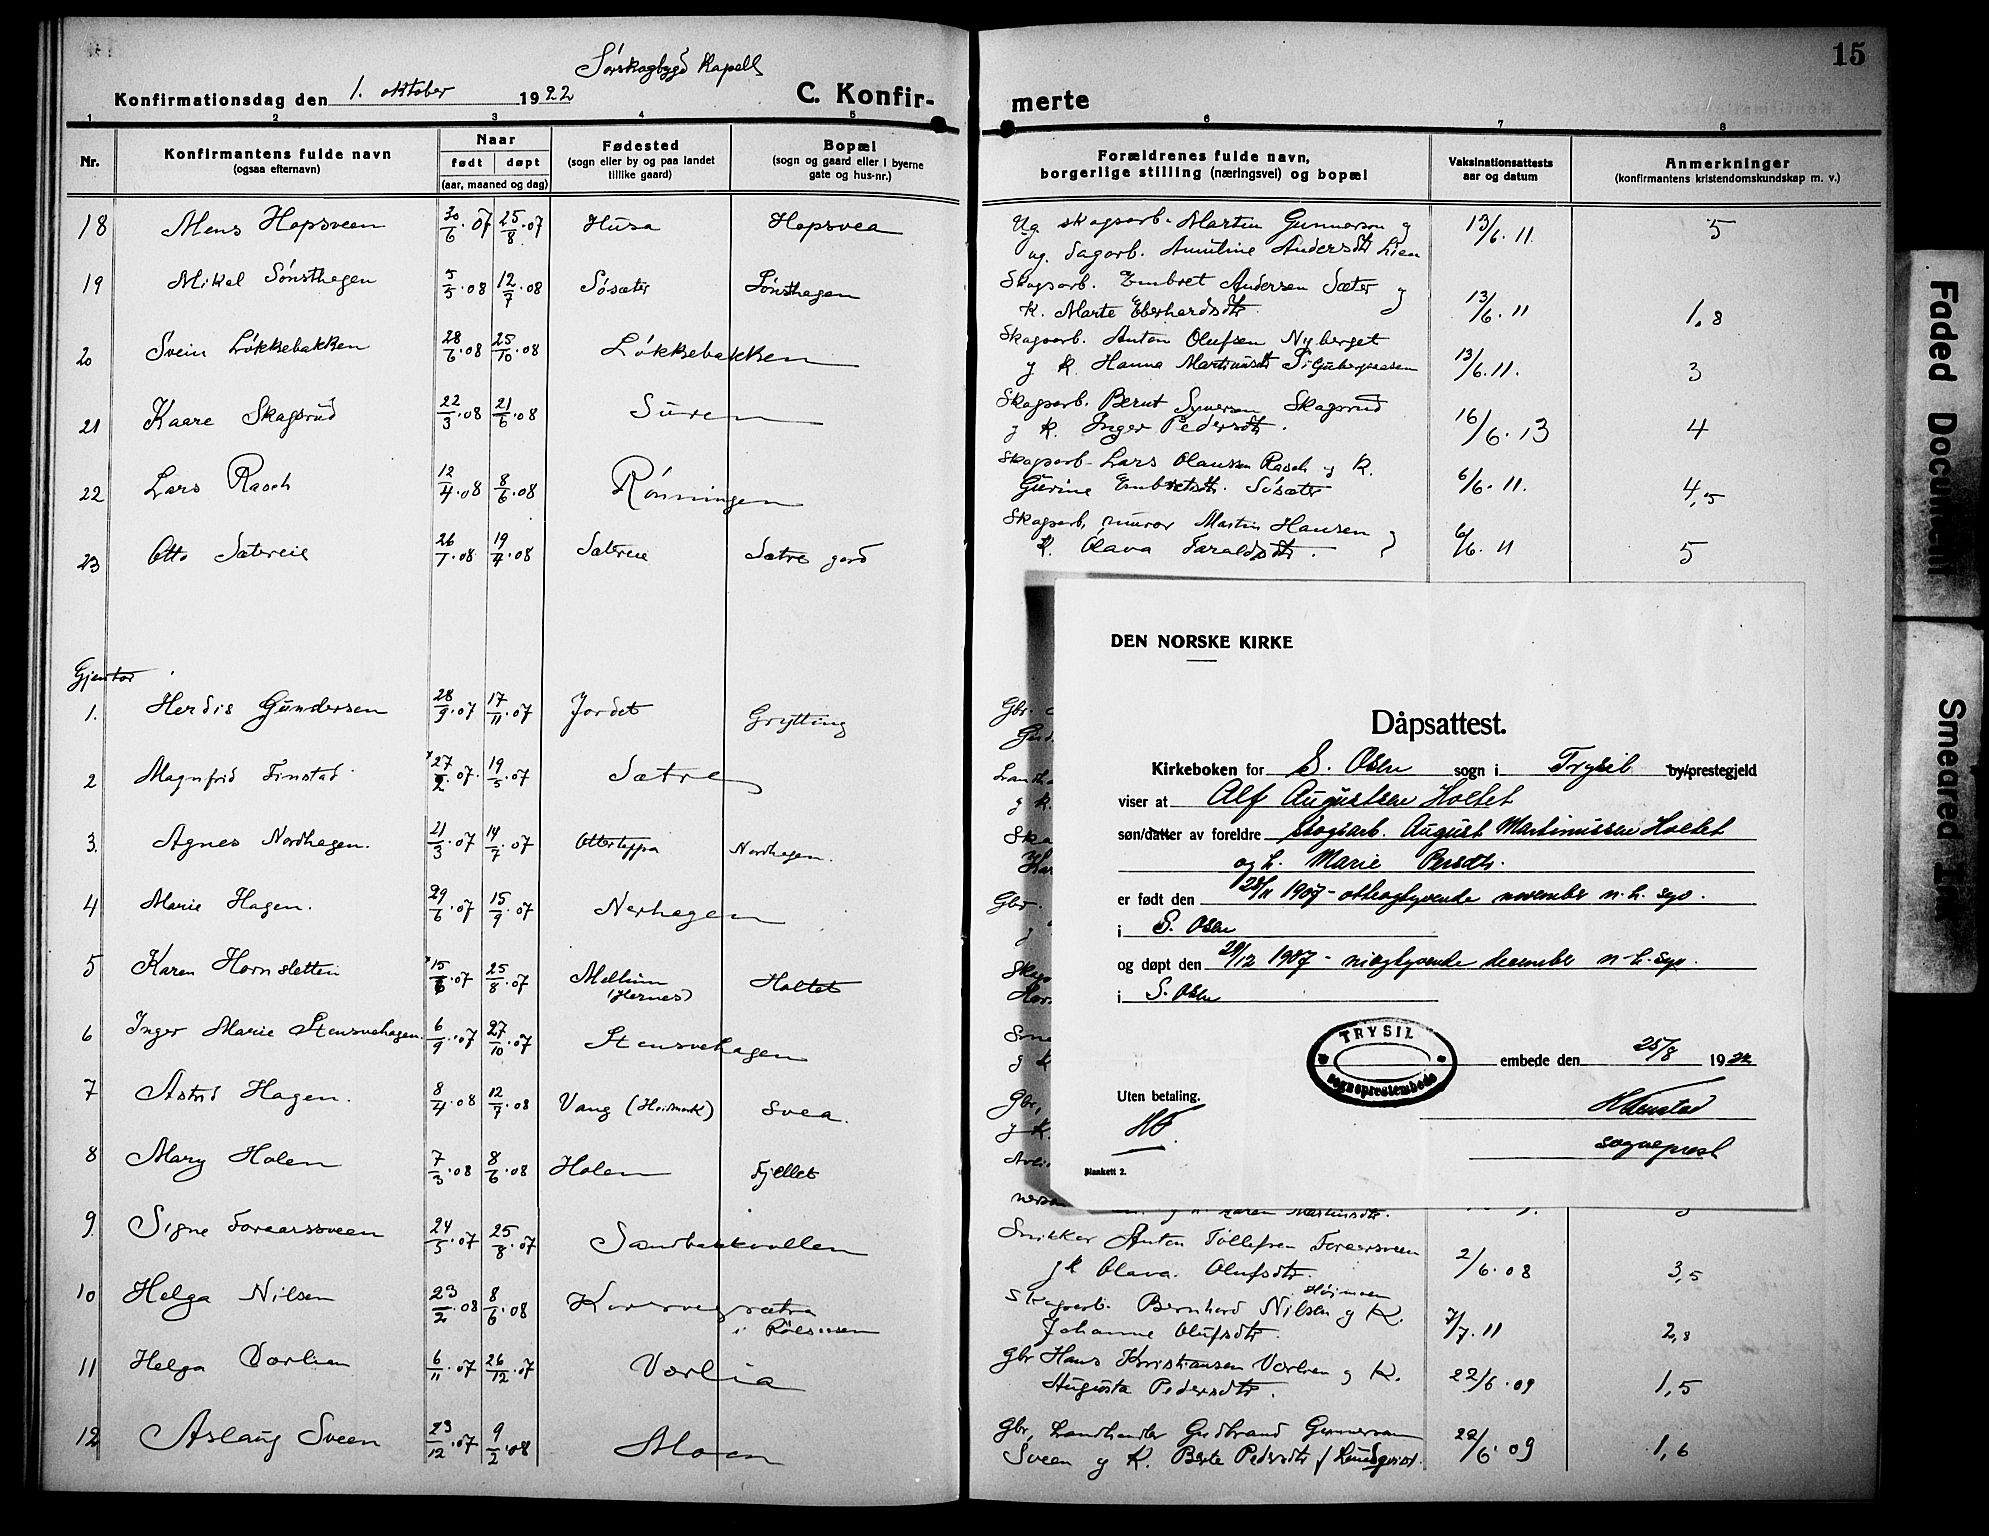 15
Sørskogbygd Kapell
Konfirmationsdag den 1. oktober 1922
C. Konfir-
merte
1 2 3 4 5 6 7 8
Nr.
Konfirmantens fulde navn
(ogsaa efternavn)
Naar
født døpt
(aar, maaned og dag)
Fødested
(sogn eller by og paa landet
tillike gaard)
Bopæl
(sogn og gaard eller i byerne
gate og hus-nr.)
Forældrenes fulde navn,
borgerlige stilling (næringsvei) og bopæl
Vaksinationsattests
aar og datum
Anmerkninger
(konfirmantens kristendomskundskap m. v.)
18 Mens Hopsveen 30/6.07 25/8.07 Husa Hopsvea
Ug skogsarb. Martin Gunnerson og 13/6.11. 5
ug. Andersdtr Lien
19 Mikal Sønsthagen 5/5.08 12/7.08 Søsæter Sønsthagen
Skogsarb. Embret Andersen Sæter og
K. Marte Eberhardsdtr 13/6.11 1,8
20 Svein Løkkebakken 28/6.08 25/10.08 Løkkebakken
Skogsarb. Anton Olufsen Nyberget
og K. Hanna 13/6.11. 3
21 Kaare Skogsrud 22/3.08 21/6.08 Suren
Skogsarb. Bernt Syversen Skogsrud
og K. Inger Pedersdtr. 16/6.13 4
22 Lars Rasch 12/4.08 8/6.08 Rønningen
Skogsarb. Lars Olausen Rasch og K. 6/6.11.
Gurine Embretsdtr. Søsæter 4,5
23 Otto Sætereie 26/1.08 19/4.08 Sætereie Sætre gard
Skogsarb, murer Martin Hansen og 6/6.11
K. Olava Taraldsdtr. 5
Gjenter
1. Herdis Gundersen 28/9.07 17/11.07 Jordet Grytting
2 Magnfrid Finstad 27/2.07. 19/5.07 Sætre
3. Agnes Nordhagen. 21/3.07 14/7.07 Otterteppa Nordhagen.
4 Marie Hagen. 29/6.07 15/9.07 Nerhagen
5 Karen Hornsletten 15/6.07 25/8.07 Mellum
(Hernes) Holtet
6 Inger Marie Stensvehagen. 6/9.07 27/10.07 Stensvehagen
7 Astrid Hagen. 8/4.08 12/7.08 Vang (Hedmark) Svea.
8 Mary Holen 7/3.08 8/6.08 Holen Fjellet
9. Signe Foraarssveen 24/5.07 25/8.07 Sandbakkvollen
Snikker Anton Tollefsen Foraarsveen
og K Olava. Olufsdtr. 2/6.08 3,5
10 Helga Nilsen 23/2.08 8/6.08
Skogsarb. Bernhard Nilsen og K.
Johanne Olufsdtr. 7/7.11 2,8
11 Helga Vorlien 6/11.07 26/12.07 Vorlia
Gbr Hans Kristiansen Vorlien og K.
Augusta Pedersdtr. 22/6.09 1,5
12 Aslaug Sveen 23/12.07 9/2.08 Moen
Gbr, Landhandler Gudbrand Gunnersen
Sveen og K. Berte Pedersdtr f. 22/6.09 1,6
DEN NORSKE KIRKE
Dåpsattest.
Kirkeboken for S. Osen sogn i Trysil by/prestegjeld
viser at Alf Augustsen Holtet
søn/datter av foreldre skogsarb. August Martinussen Holtet
og h. Marie Persdtr.
er født den 28/11 1907 - otteogtyvende november n. h. syv.
i S. Osen
og døpt den 29/12 1907 - niogtyvende december n. h. syv.
i S. Osen
TRYSIL
sogneprestembede
embede den 25/8 1922
Uten betaling.
sogneprest
Blankett 2.
Faded Document
Smeared Ink